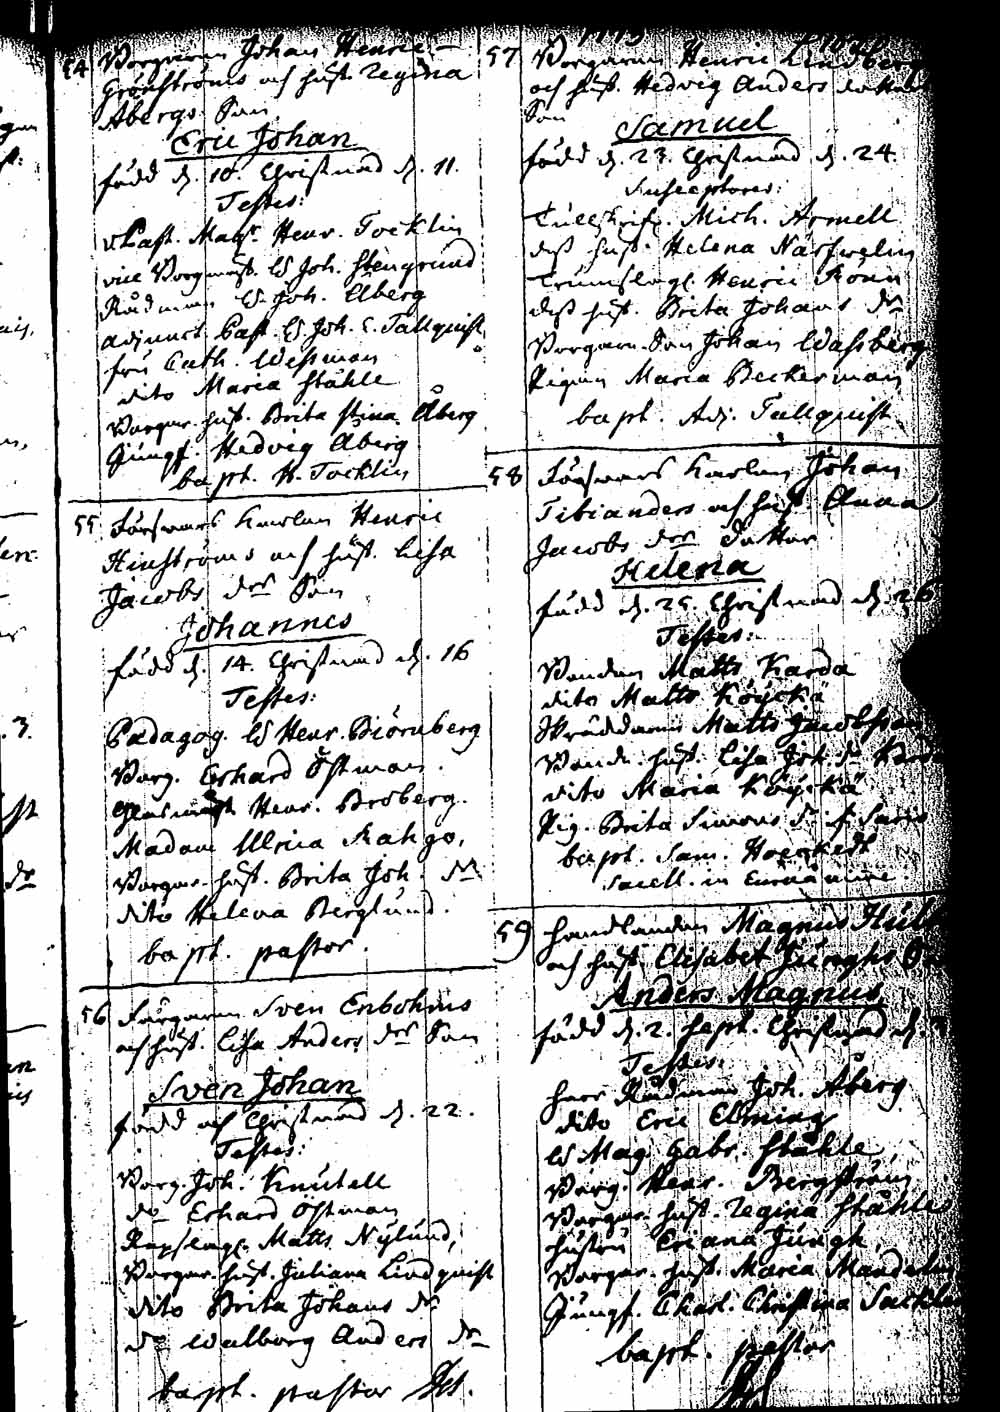 54 Borgaren Johan Henric
Grönströms och hust. Regina
Åbergs Son
Eric Johan
född d. 10. Christnad d. 11.
Testes:
vPast. Mag. Henr. Tocklin
vice Borgmäst. H Joh. Stengrund
Rådman H. Joh. Åberg
adjunct. Past. H Joh. C. Tallquist
fru Cath. Wessman
dito Maria Ståhle
Borgar. hust. Brita Stina Åberg
Jungf. Hedvig Åberg
bapt. H. Tocklin
55 Försvars Karlen Henric
Hinströms och hust. Lisa
Jacobs dr Son
Johannes
född d. 14. Christnad d. 16
Testes:
Pædagog. H Henr. Biörnberg
Borg. Erhard Östman.
Glasmäst Henr. Broberg.
Madam Ulrica
Borgar. hust. Brita Joh. dr
dito Helena Berglund.
bapt. pastor.
56 Färgaren Sven Enbohms
och hust. Lisa Anders dr Son
Sven Johan
född och Christnad d. 22.
Testes:
Borg. Joh. Knutell
do Erhard Östman
Repslag. Matts Nylund,
Borgar. hust. Juliana Lindquist
dito Brita Johans dr
do Walborg Anders dr
bapt. pastor
57 Borgaren Henric Lindberg
och hust. Hedvig Anders dotters
Son
Samuel
född d. 23. Christnad d. 24.
Susceptores:
Tullskrif. Mich. Armell
dess hust. Helena
Trumslag. Henric
dess hust. Brita Johans dr
Borgare Son Johan Wassberg
Pigan Maria Beckerman
bapt. Adj. Tallquist
58 Försvars Karlen Johan
Tibianders och hust. Anna
Jacobs dr Dotter
Helena
född d. 25. Christnad d. 26
Testes:
Bonden Matts Karda
dito Matts Köyckä
Skräddaren Matts Jacobsson
Bonde. hust. Lisa Joh. dr
dito Maria Köyckä
Pig. Brita Simons dr
bapt. Sam. Hoeckert
Sacell. in
59 Handlanden Magnus
och hust. Elisabet Junghs
Anders Magnus
född d. 2. Sept. Christnad d.
Testes:
Herr Rådman Joh. Åberg
dito Eric Elming
H Mag. Gabr. Ståhle,
Borg. Henr. Bergström
Borgar. hust. Regina Ståhle
hustru Ericana Jungh
Borgar. hust. Maria
Jungf. Charl. Christina
bapt. pastor